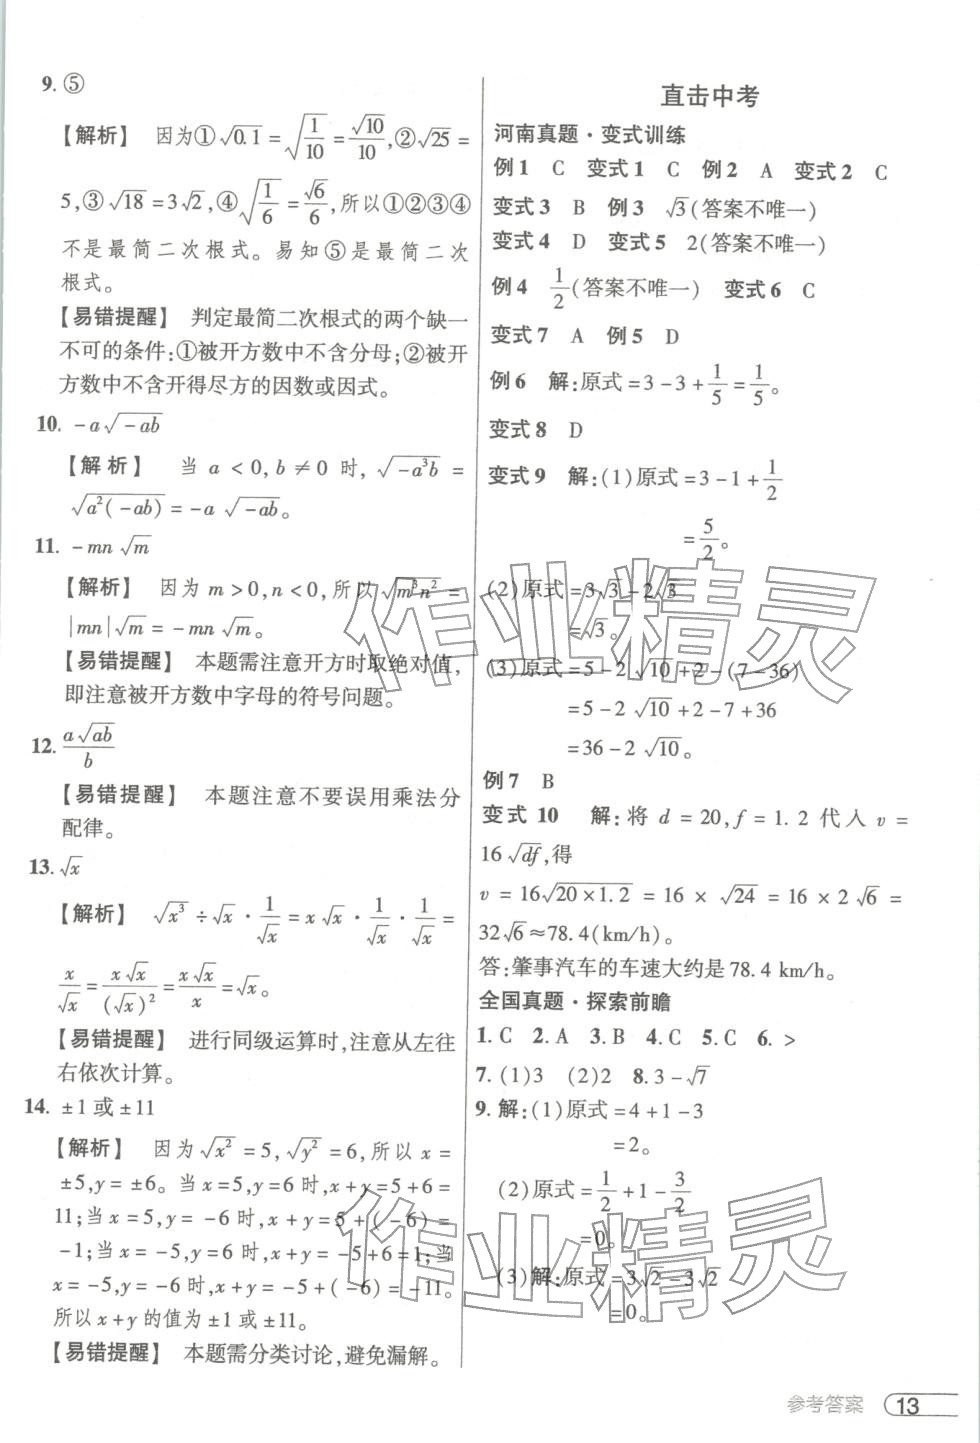 9. ⑤
【解析】 因为①√0.1=√(1/10)=√10/10,②√25=
5,③√18=3√2,④√(1/6)=√6/6,所以①②③④
不是最简二次根式。易知⑤是最简二次
根式。
【易错提醒】 判定最简二次根式的两个缺一
不可的条件:①被开方数中不含分母;②被开
方数中不含开得尽方的因数或因式。
10. -a√(-ab)
【解析】 当 a<0,b≠0 时,√(-a³b)=
√(a²(-ab))=-a√(-ab)。
11. -mn√m
【解析】 因为 m>0,n<0,所以√(m³n²)=
|mn|√m=-mn√m。
【易错提醒】 本题需注意开方时取绝对值,
即注意被开方数中字母的符号问题。
12. a√(ab)/b
【易错提醒】 本题注意不要误用乘法分
配律。
13. √x
【解析】 √(x³)÷√x·1/√x=x√x·1/√x·1/√x=
x/√x=x√x/(√x)²=x√x/x=√x。
【易错提醒】 进行同级运算时,注意从左往
右依次计算。
14. ±1或±11
【解析】 因为√(x²)=5,√(y²)=6,所以 x=
±5,y=±6。当 x=5,y=6 时,x+y=5+6=
11;当 x=5,y=-6 时,x+y=5+(-6)=
-1;当 x=-5,y=6 时,x+y=-5+6=1;当
x=-5,y=-6 时,x+y=-5+(-6)=-11。
所以 x+y 的值为±1或±11。
【易错提醒】 本题需分类讨论,避免漏解。
直击中考
河南真题·变式训练
例1 C 变式1 C 例2 A 变式2 C
变式3 B 例3 √3(答案不唯一)
变式4 D 变式5 2(答案不唯一)
例4 1/2(答案不唯一) 变式6 C
变式7 A 例5 D
例6 解:原式=3-3+1/5=1/5。
变式8 D
变式9 解:(1)原式=3-1+1/2
=5/2。
(2)原式=3√3-2√3
=√3。
(3)原式=5-2√10+2-(7-36)
=5-2√10+2-7+36
=36-2√10。
例7 B
变式10 解:将 d=20,f=1.2 代入 v=
16√(df),得
v=16√(20×1.2)=16×√24=16×2√6=
32√6≈78.4(km/h)。
答:肇事汽车的车速大约是78.4 km/h。
全国真题·探索前瞻
1. C 2. A 3. B 4. C 5. C 6. >
7. (1)3 (2)2 8. 3-√7
9. 解:(1)原式=4+1-3
=2。
(2)原式=1/2+1-3/2
=0。
(3)解:原式=3√2-3√2
=0。
作业精灵
作业精灵
参考答案 13